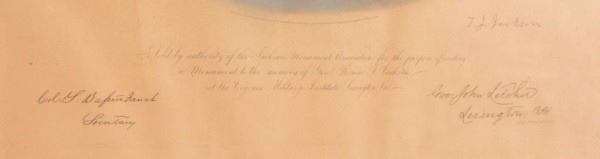 T. J. Jackson
Sold by authority of the Jackson Monument Association for the purpose of erecting
a Monument to the memory of Genl. Thomas J. Jackson
at the Virginia Military Institute Lexington, Va.
Col. S.
Secretary
Gov. John Letcher
Lexington, Va